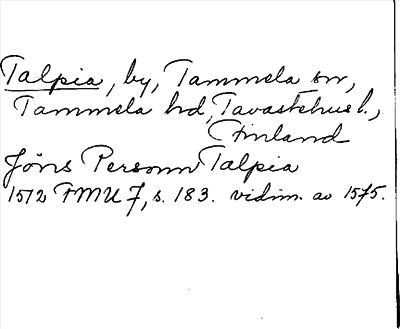 Talpia, by, Tammela sn,
Tammela hd, Tavastehus l.,
Finland
Jöns Personn Talpia
1512 FMU 7, s. 183. vidim. av 1575.